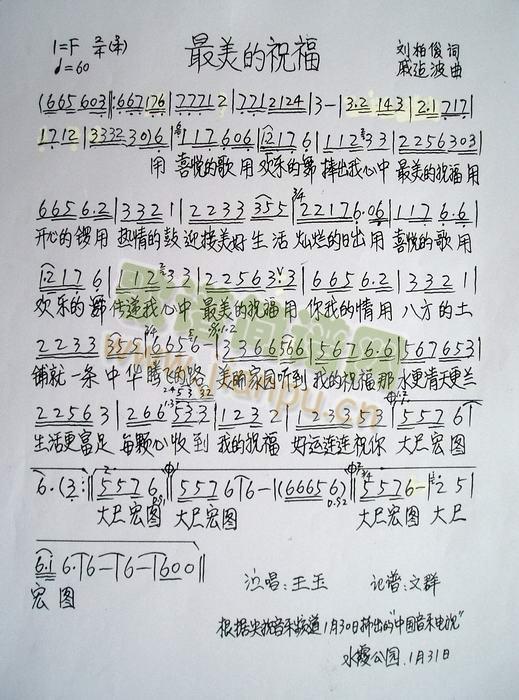 1=F 2/4(3/4) 最美的祝福 刘柏俊 词
♩=60 戚运波 曲
(665 603‖:667176|77712|7712124|3-|3.2 143|2.1717|
1712|3332 3016|117606|12176|11233|2256303|
用 喜悦的歌 用 欢乐的舞 捧出我心中 最美的祝福 用
6656.2|3321|2233 355|22176.06|1176.6|
开心的锣用 热情的鼓 迎接美好 生 活 灿烂的日出 用 喜悦的歌 用
1.2176|11233|225633|6656.2|3321|
欢乐的舞 传递我心中 最美的祝福 用 你我的情 用 八方的土
2233 355|6656|3366566|5676.6|567653|
铺就一条 中华腾飞的路 美丽家园听到 我的祝福 那 水更清天更兰
22563|266 533|1232|123353|5576|
生活更富足 每颗心收到 我的祝福 好运连连祝你 大尺宏图
6.(3:‖5576|5576|6-|(66656)|5576-|25|
大尺宏图 大尺宏图 大尺宏图 大尺
6.1 6.|6-|6-|600‖
宏 图
演唱:王玉 记谱:文群
根据央视音乐频道1月30日播出的"中国音乐电视"
水霞公园.1月31日